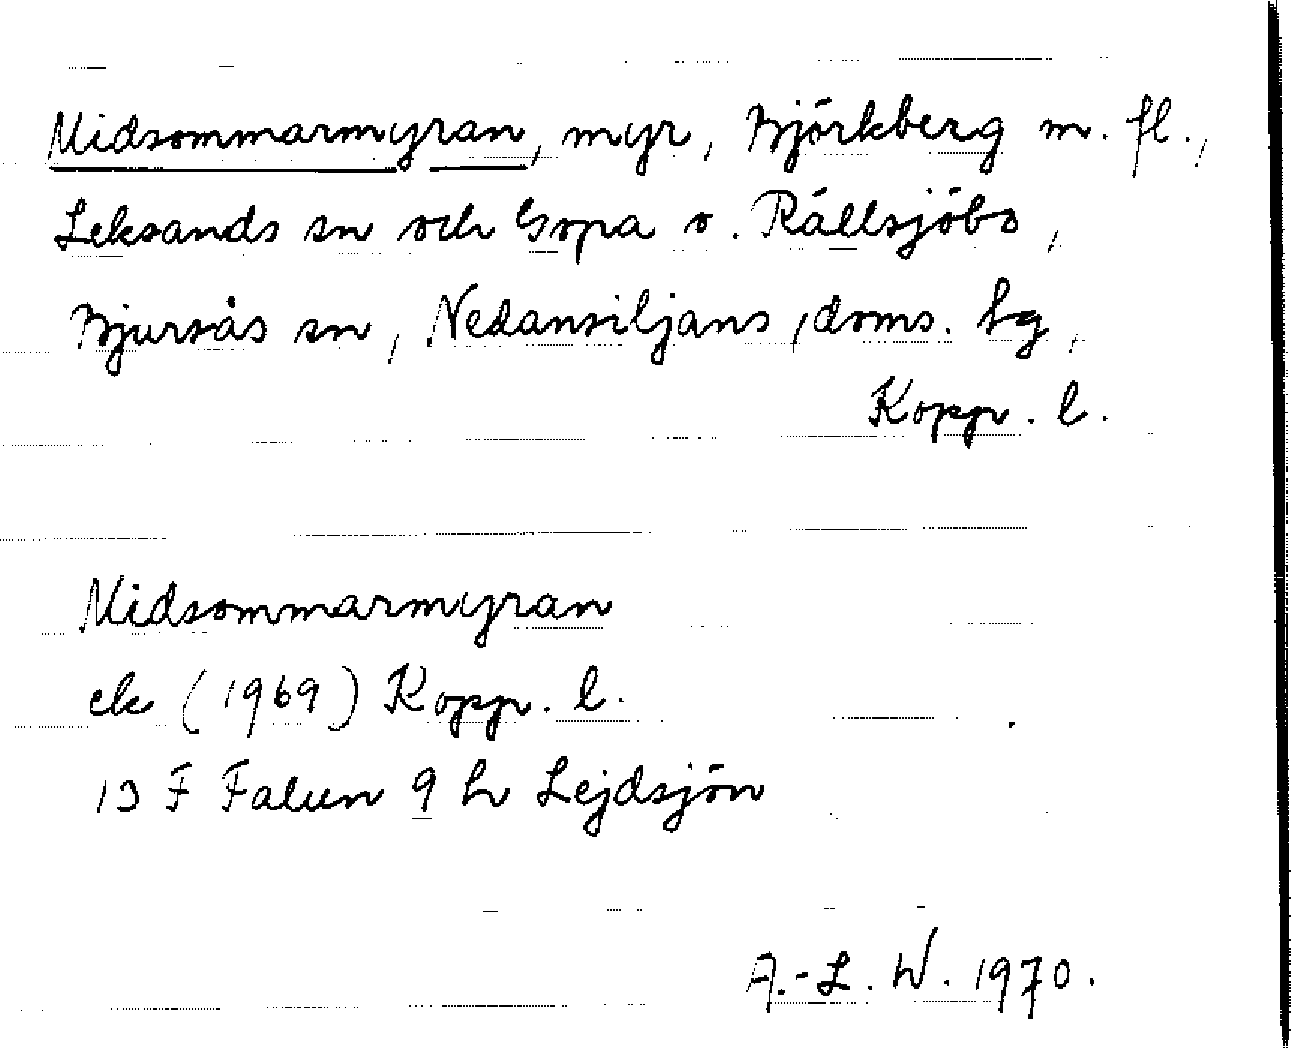 Midsommarmyran, myr, Björkberg m. fl.,
Leksands sn och Gopa o. Rällsjöbo,
Bjursås sn, Nedansiljans, doms. hg,
Kopp. l.
Midsommarmyran
ek (1969) Kopp. l.
13 F Falun 9 h Lejdsjön
A.-L. W. 1970.